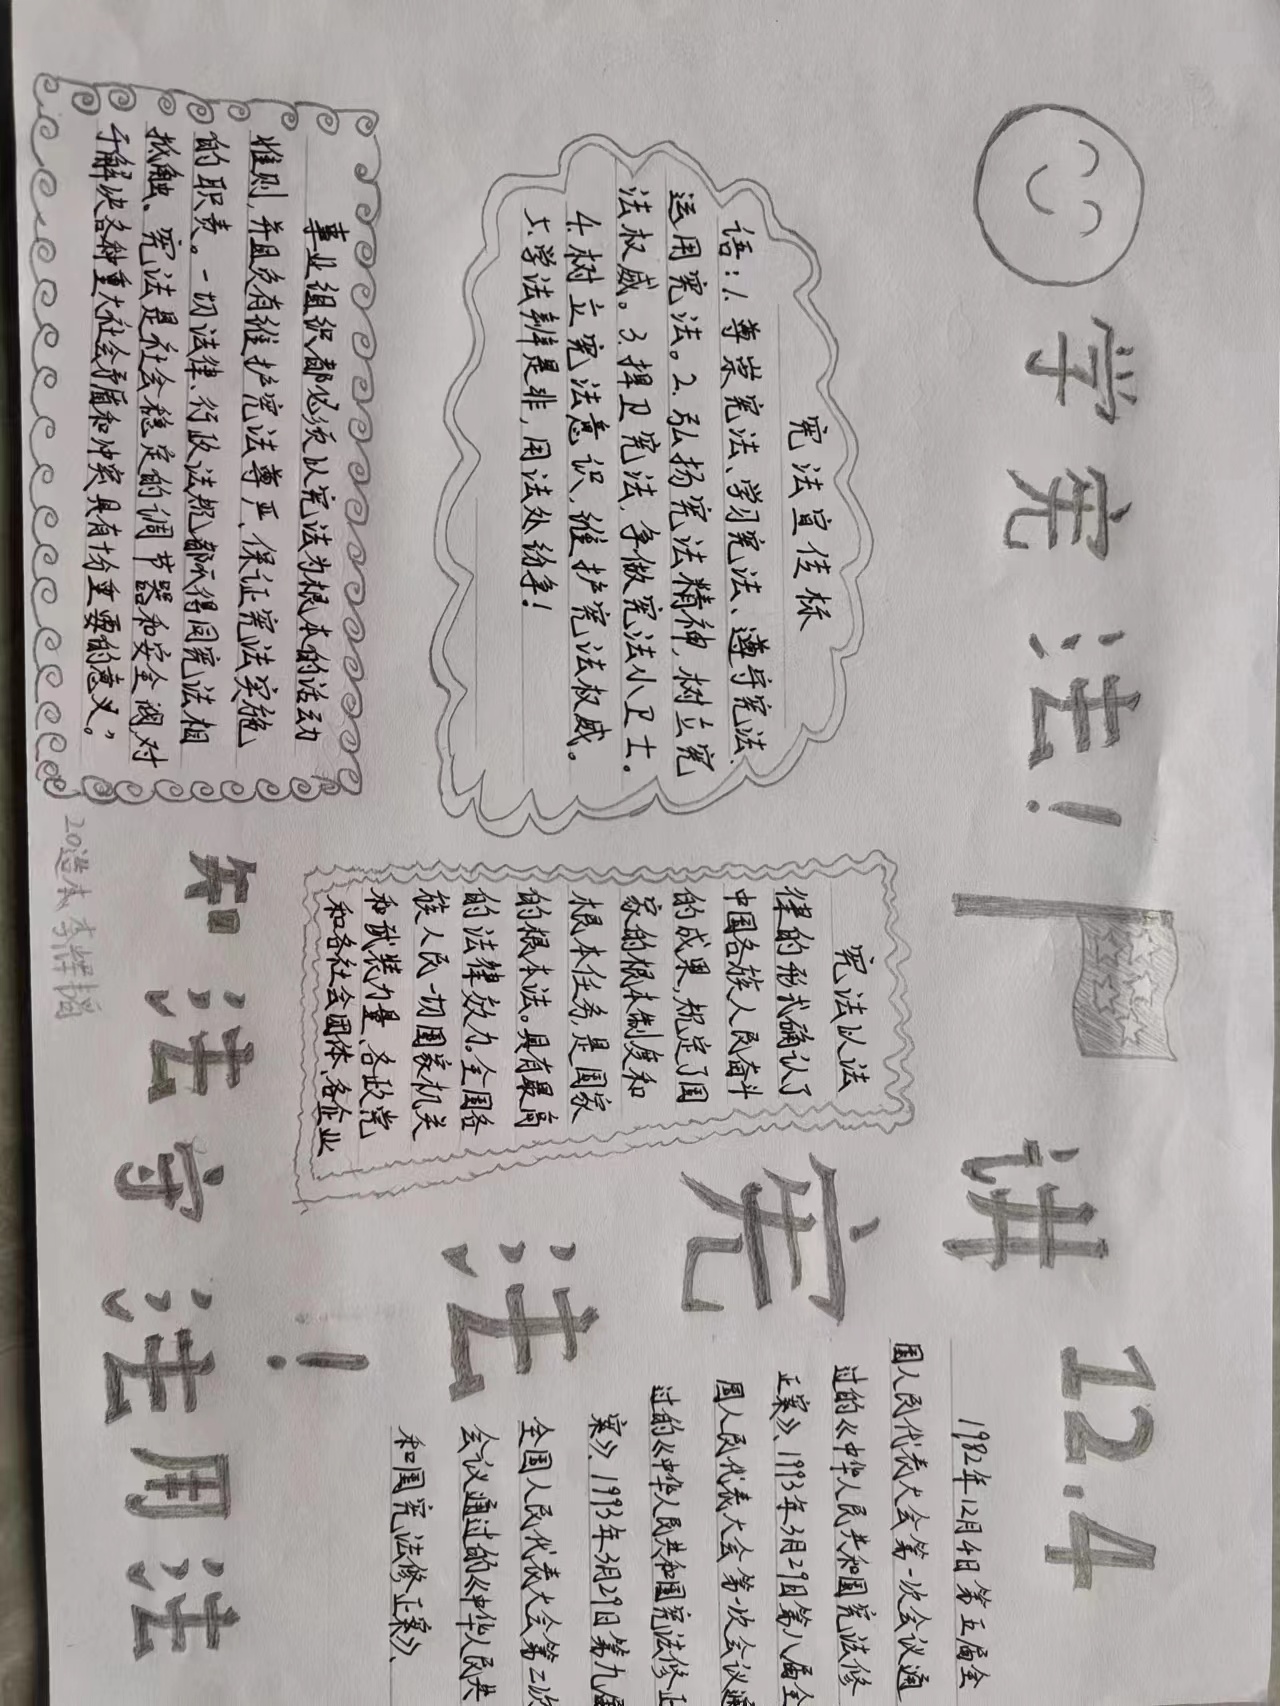 学宪法!
讲
宪
法
!
12.4
知法守法用法
宪法宣传标
语:1.尊崇宪法、学习宪法、遵守宪法.
运用宪法。2.弘扬宪法精神,树立宪
法权威。3.捍卫宪法,争做宪法小卫士.
4.树立宪法意识,维护宪法权威。
5.学法辨是非,用法处纷争!
宪法以法
律的形式确认了
中国各族人民奋斗
的成果,规定了国
家的根本制度和
根本任务,是国家
的根本法。具有最高
的法律效力。全国各
族人民一切国家机关
和武装力量、各政党
和各社会团体、各企业
事业组织都必须以宪法为根本的活动
准则,并且负有维护宪法尊严、保证宪法实施
的职责。一切法律、行政法规都不得同宪法相
抵触、宪法是社会稳定的调节器和安全阀,对
于解决各种重大社会矛盾和冲突具有均重要的意义。"
1982年12月4日第五届全
国人民代表大会第一次会议通
过的《中华人民共和国宪法修
正案》、1993年3月29日第八届全
国人民代表大会第一次会议通
过的《中华人民共和国宪法修正
案》、1993年3月29日第九届
全国人民代表大会第二次
会议通过的《中华人民共
和国宪法修正案》、
20造本